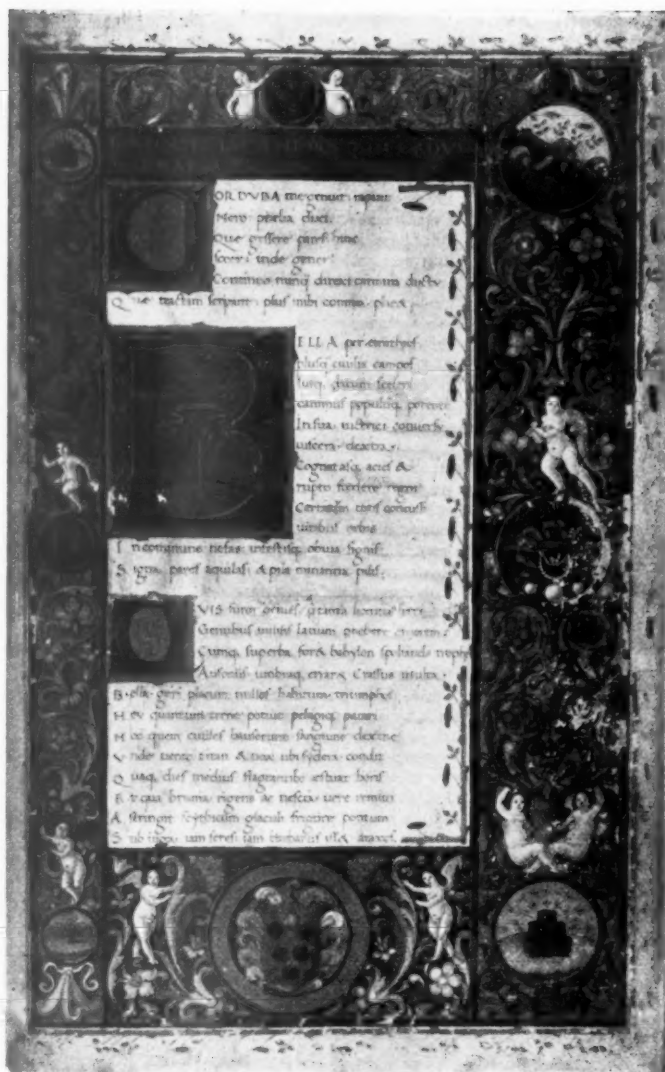 CORDVBA me genuit rapuit
Nero prelia dixi.
Que gessere pares hinc
soceri inde gener.
Continuo nunq direxi carmina ductu
Que tractim serpant plus mihi comma placet
BELLA per emathios
plusq civilia campos
Iusq datum sceleri
canimus populumq potentem
In sua victrici conversum
viscera dextra.
Cognatasq acies &
rupto foedere regni
Certatum totis concussi
viribus orbis
In commune nefas infestisq obvia signis
Signa pares aquilas & pila minantia pilis.
QVIS furor o cives q tanta licentia ferri
Gentibus invisis latium prebere cruorem
Cunq superba foret babylon spolianda tropheis
Ausoniis umbraq erraret Crassus inulta.
Bella geri placuit nullos habitura triumphos
Heu quantum terre potuit pelagiq parari
Hoc quem civiles hauserunt sanguine dextre
Vnde venit titan & nox ubi sydera condit
Quaq dies medius flagrantibus aestuat horis
Et qua bruma rigens ac nescia vere remitti
Astringit scythicum glaciali frigore pontum
Sub iuga iam seres iam barbarus isset araxes